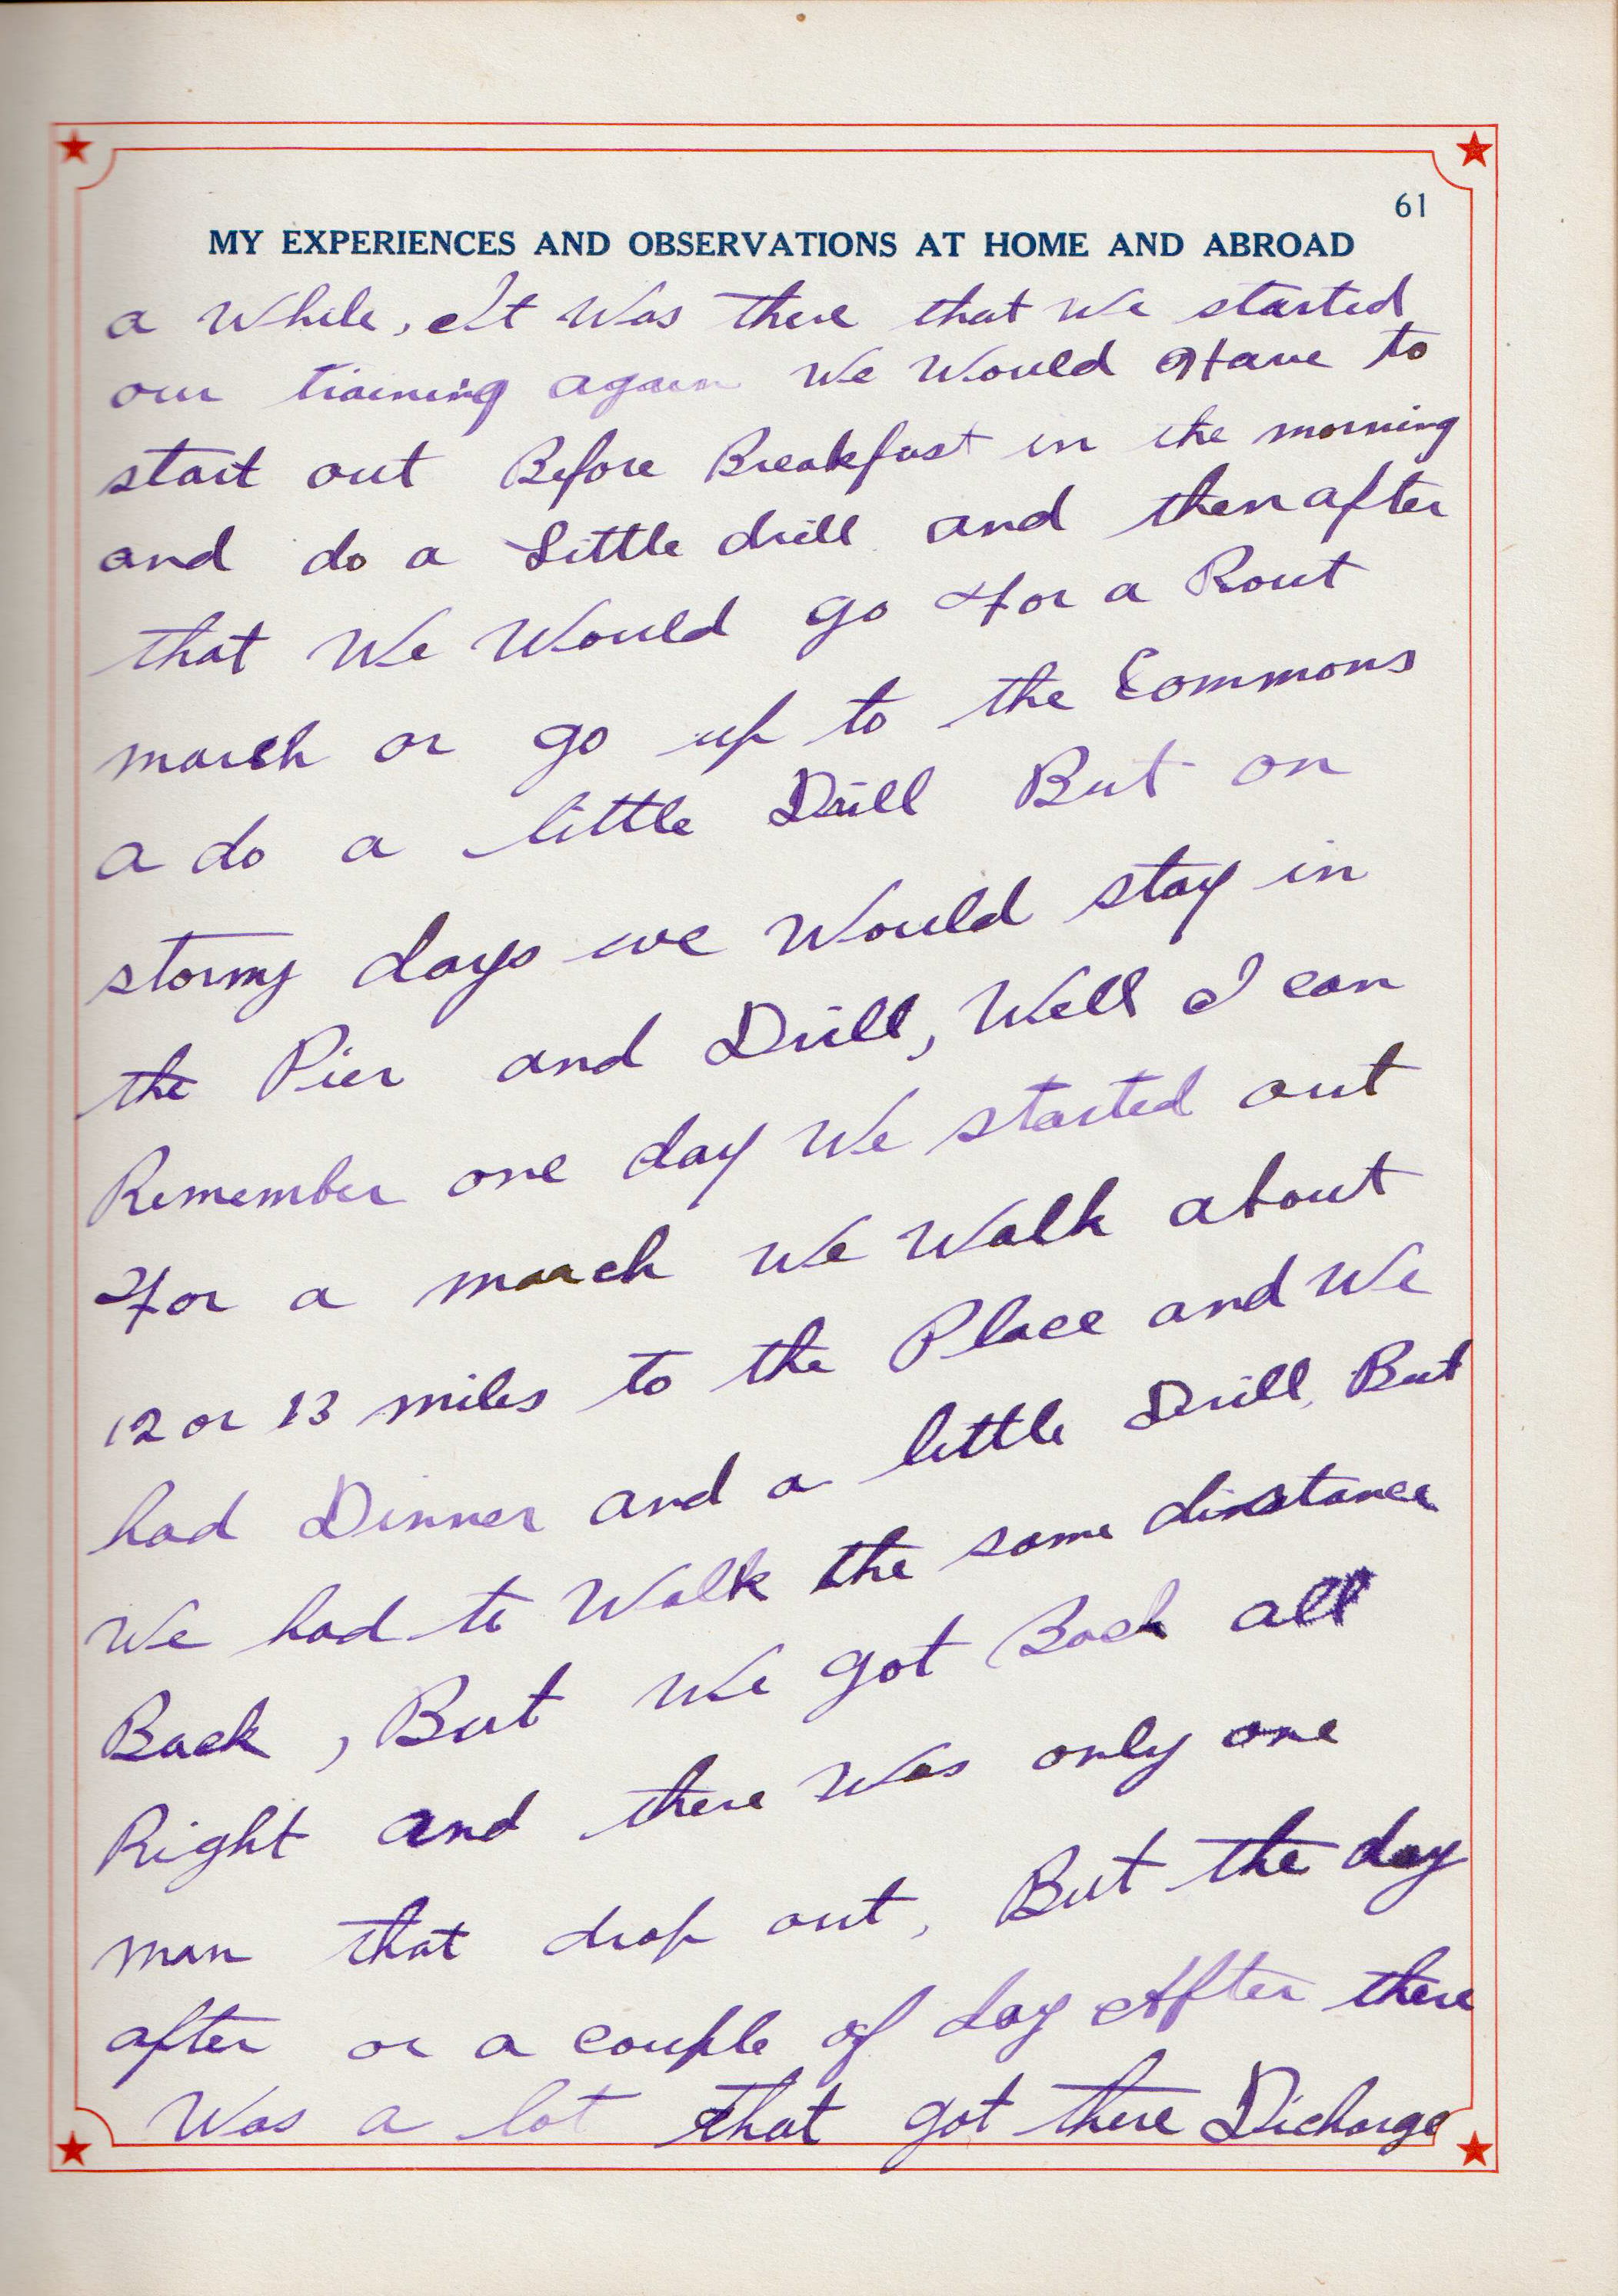 61
MY EXPERIENCES AND OBSERVATIONS AT HOME AND ABROAD
a While, It Was there that We started
our training again We Would Have to
start out Before Breakfast in the morning
and do a Little drill and then after
that We Would go For a Rout
march or go up to the Commons
a do a little Drill But on
stormy days we Would stay in
the Pier and Drill, Well I can
Remember one day We started out
For a march We Walk about
12 or 13 miles to the Place and We
had Dinner and a little Drill, But
We had to Walk the same dinstance
Back, But We got Back all
Right and there Was only one
man that drop out, But the day
after or a couple of day After there
Was a lot that got there Dicharge